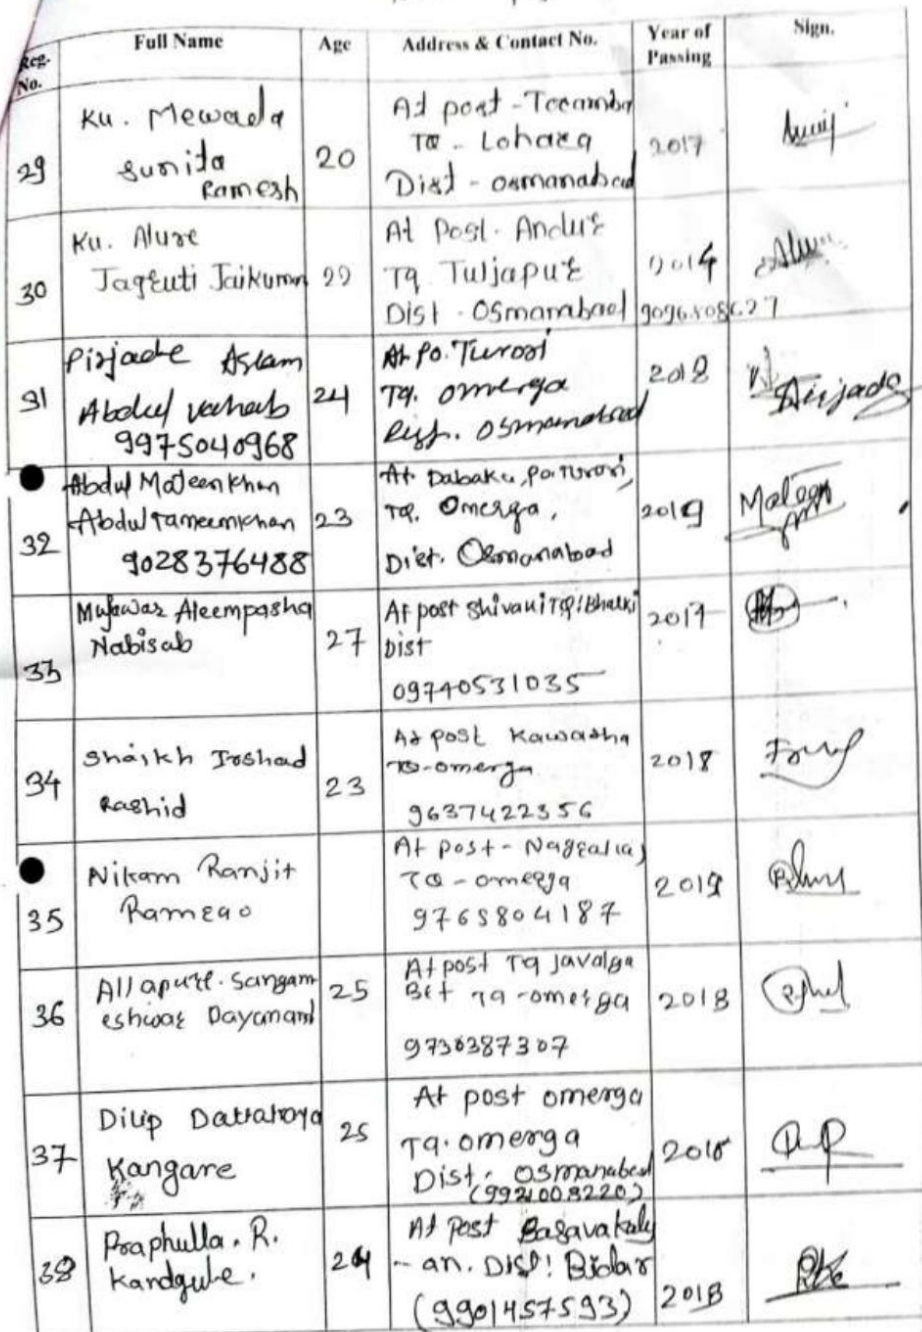 Reg. No. Full Name Age Address & Contact No. Year of Passing Sign.
29 Ku. Mewada Sunita Ramesh 20 At post - Tq - Lohara Dist - osmanabad 2017
30 Ku. Alure Jagruti Jaikumar At Post. Andur Tq Tuljapur Dist. Osmanabad
31 Pirjade Aslam Abdul vahab 9975040968 24 At Po. Turori Tq. omerga Dist. Osmanabad 2018 Pirjade
32 Abdul Mateenkhan 9028376488 23 At Dabaka, po. Turori, Tq. Omerga, Dist. Osmanabad 2019 Mateen
33 Mujawar Aleempasha Nabisab 27 At post Shivani Tq! Bhalki Dist 09740531035
34 Shaikh Irshad Rashid 23 At post Tq-omerga 9637422356 2018
35 Nikam Ranjit Ramrao At post - Tq - omerga 9765804187
36 Allapure. Sangam eshwar Dayanand 25 At post Tq Javalga Bet Tq-omerga 9730387307 2018
37 Dilip Dattatraya Kangare 25 At post omerga Tq. omerga Dist. Osmanabad
38 Praphulla. R. 24 At Post Basavakaly - an. Dist! Bidar (9901457593) 2018